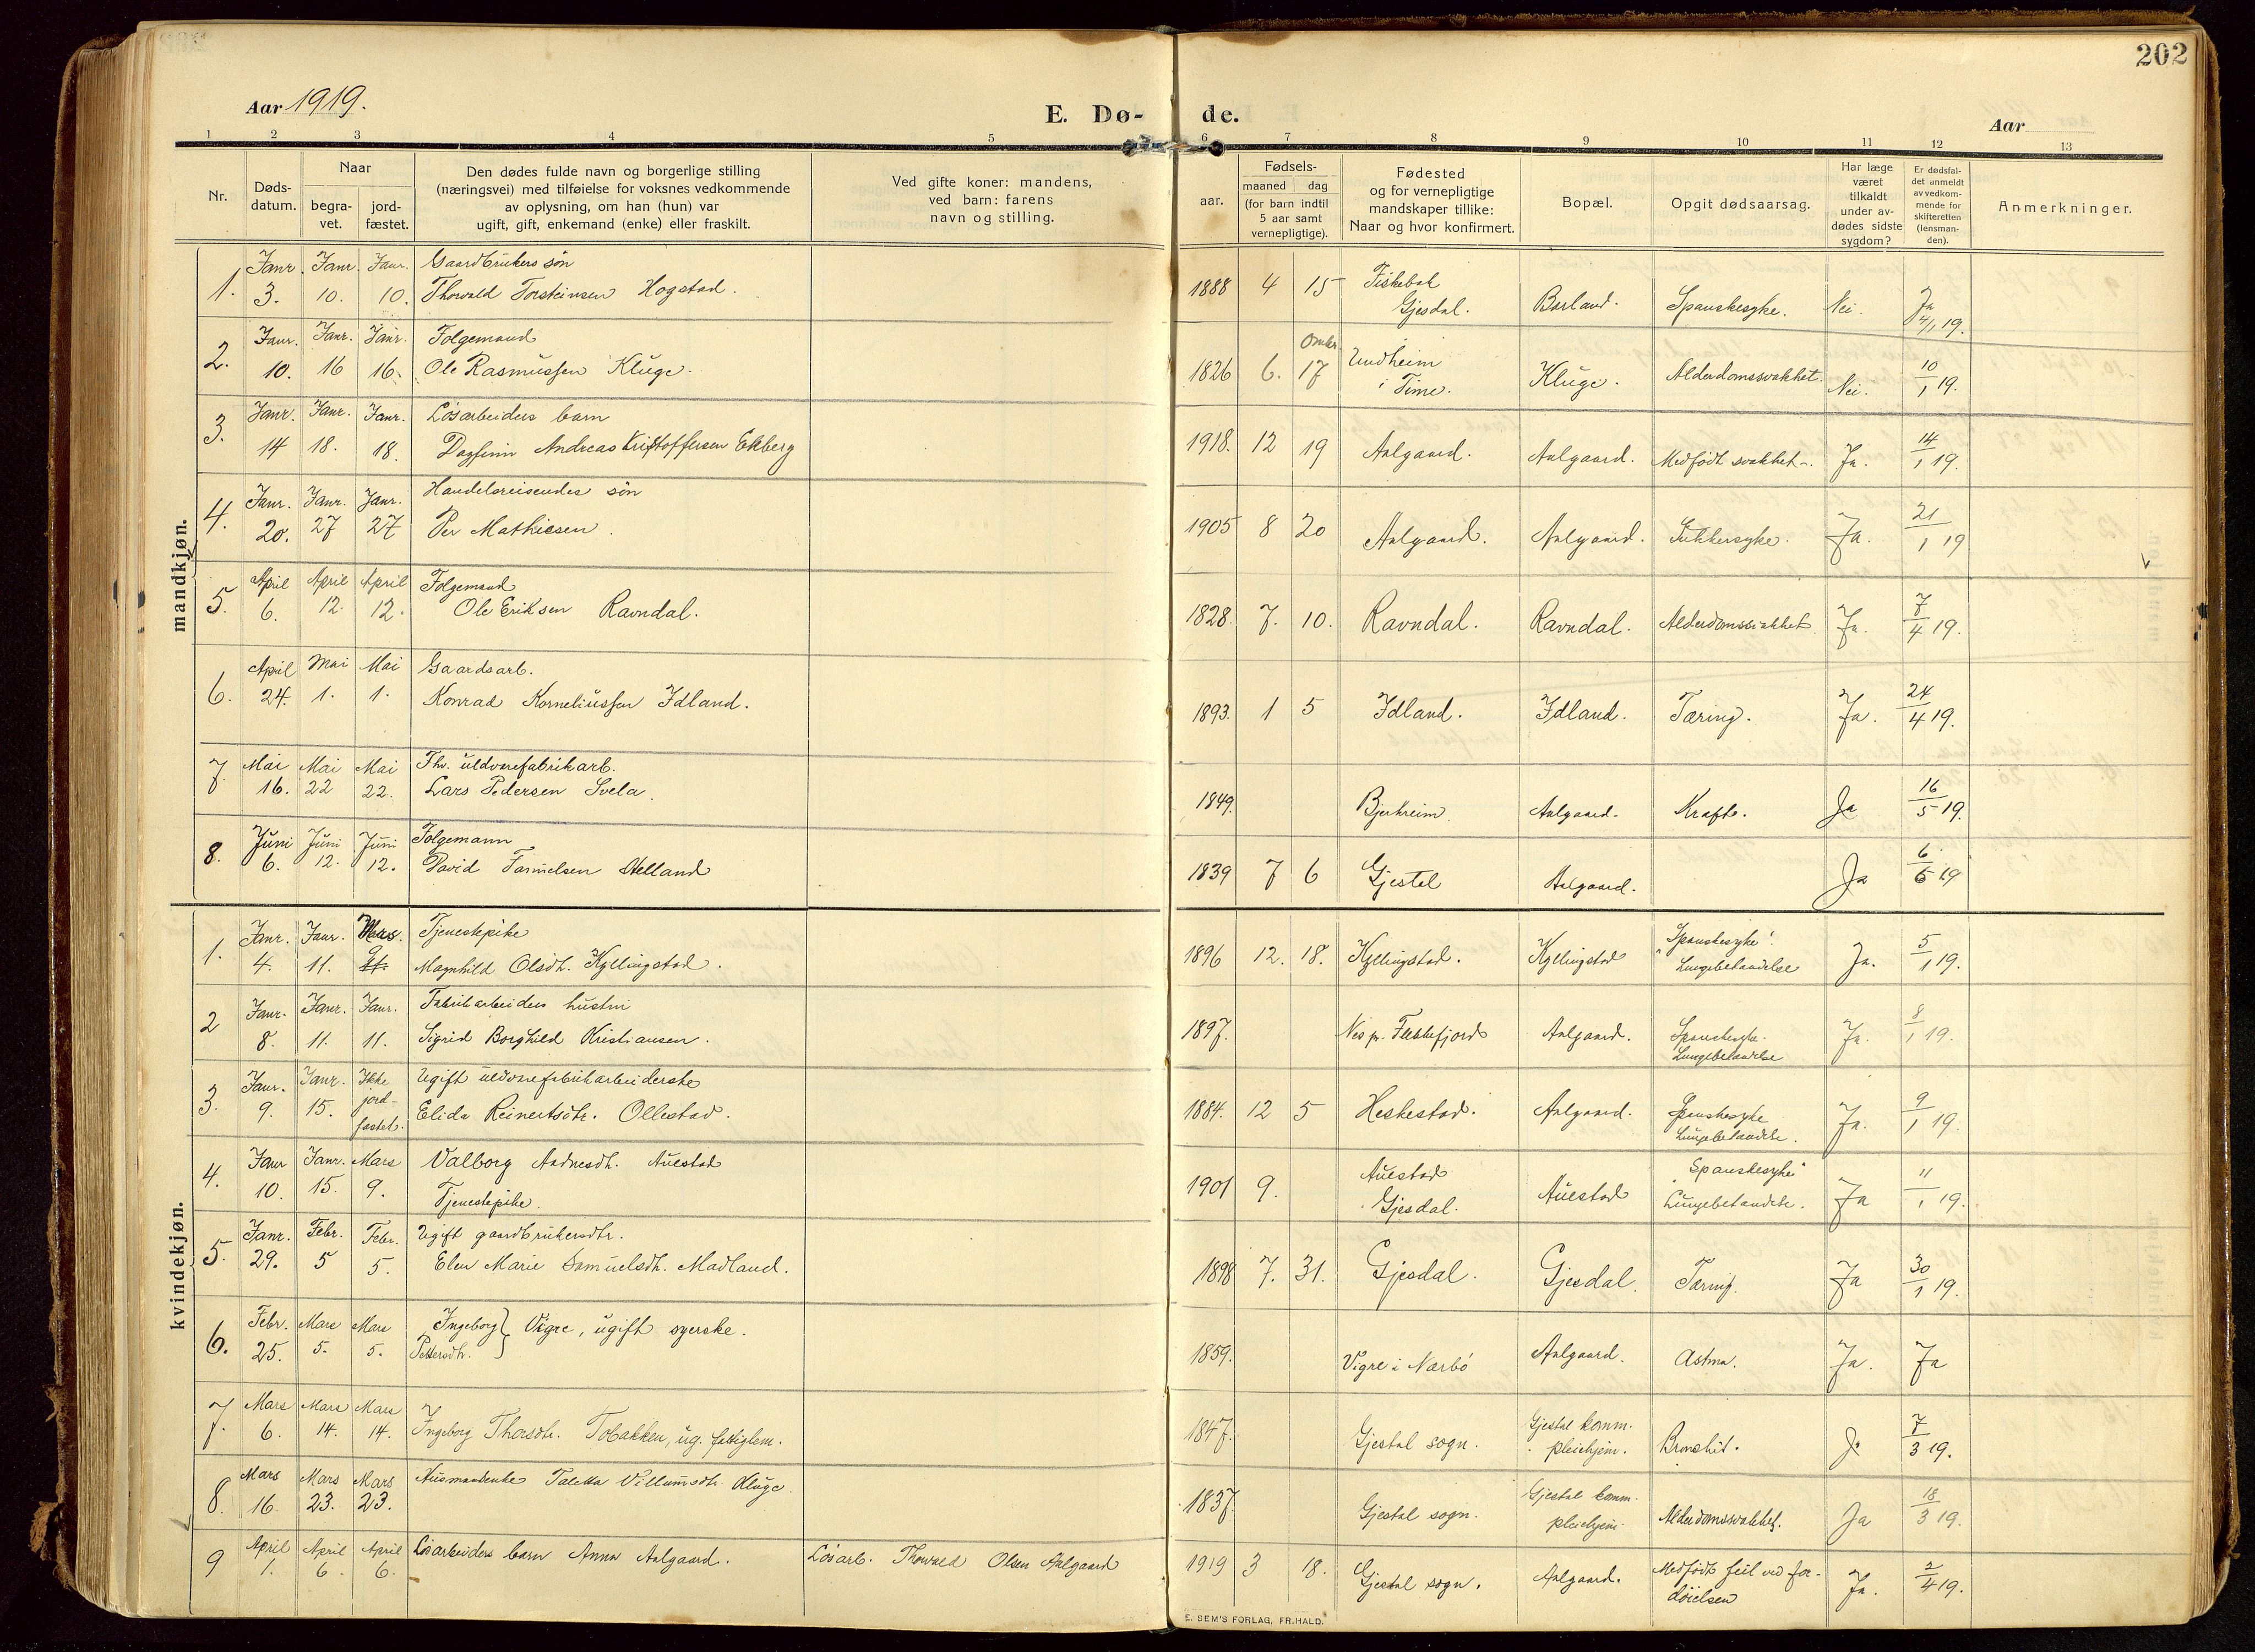 202
Aar 1919.
E. Dø- de.
Aar
1 2 3 4 5 6 7 8 9 10 11 12 13
Nr.
Døds-
datum.
Naar
begra-
vet.
jord-
fæstet.
Den dødes fulde navn og borgerlige stilling
(næringsvei) med tilføielse for voksnes vedkommende
av oplysning, om han (hun) var
ugift, gift, enkemand (enke) eller fraskilt.
Ved gifte koner: mandens,
ved barn: farens
navn og stilling.
Fødsels-
aar.
maaned dag
(for barn indtil
5 aar samt
vernepligtige).
Fødested
og for vernepligtige
mandskaper tillike:
Naar og hvor konfirmert.
Bopæl.
Opgit dødsaarsag.
Har læge
været
tilkaldt
under av-
dødes sidste
sygdom?
Er dødsfal-
det anmeldt
av vedkom-
mende for
skifteretten
(lensman-
den).
Anmerkninger.
mandkjøn.
Janr. Janr. Janr. Gaardbrukers søn
1. 3. 10. 10. Thorvald Torsteinsen Hogstad. 1888 4 15 Fiskebek Gjesdal. Borland. Spanskesyke. Nei. Ja 4/1 19.
Janr. Janr. Janr. Folgemand
2. 10. 16 16. Ole Rasmussen Kluge. 1826 6. 17 Undheim i Time. Kluge. Alderdomssvakhet. Nei. 10/1 19.
Janr. Janr. Janr. Løsarbeiders barn
3. 14 18. 18. Dagfinn Andreas Kristoffersen Ekberg 1918. 12 19 Aalgaard. Aalgaard. Medfødt svakhet. Ja. 14/1 19.
Janr. Janr. Janr. Handelsreisendes søn
4. 20. 27 27 Per Mathiesen. 1905 8 20 Aalgaard. Aalgaard. Sukkersyke. Ja. 21/1 19
April April April Folgemand
5. 6. 12. 12. Ole Eriksen Ravndal. 1828. 7. 10. Ravndal. Ravndal. Alderdomssvakhet Ja. 7/4 19.
April Mai Mai Gaardsarb.
6. 24. 1. 1. Konrad Korneliussen Idland. 1893. 1 5 Idland. Idland. Tæring. Ja. 24/4 19.
Mai Mai Mai Fhv. uldvarefabrikarb.
7. 16. 22 22. Lars Pedersen Svela. 1849. Bjerkreim. Aalgaard. Kræft. Ja 16/5 19.
Juni Juni Juni Folgemann
8. 6. 12. 12. David Helland 1839 7 6 Gjestal Aalgaard. Ja 6/6 19
kvindekjøn.
Janr. Janr. Mars. Tjenestepike
1. 4. 11. 9. Magnhild Olsdt. Kyllingstad. 1896 12. 18. Kyllingstad. Kyllingstad "Spanskesyke". Lungebetændelse Ja. 5/1 19.
Janr. Janr. Janr. Fabrikarbeiders hustru
2 8. 11. 11. Sigrid Borghild Kristiansen. 1897. Nes pr. Aalgaard. Spanskesyke. Lungebetændelse Ja. 8/1 19.
Janr. Janr. Ikke jord- fæstet. Ugift uldvarefabrikarbeiderske
3. 9. 15. Elida Reinertsdtr. Ollestad. 1884. 12 5 Heskestad. Aalgaard. Spanskesyke Lungebetændelse. Ja. 9/1 19.
Janr Janr. Mars Valborg Audnesdt. Auestad
4. 10. 15. 9. Tjenestepike. 1901 9. Auestad Gjesdal. Auestad "Spanskesyke" Lungebetændelse. Ja 11/1 19.
Janr. Febr. Febr. Ugift gaardbrukersdtr.
5. 29. 5 5. Elen Marie Samuelsdt. Madland. 1898 7. 31. Gjesdal. Gjesdal. Tæring. Ja 30/1 19.
Febr. Mars Mars Ingeborg Pettersdt. } Vigre, ugift syerske.
6. 25. 5. 5. 1859. Vigre i Nærbø Aalgaard. Astma. Ja. Ja
Mars Mars Mars
7. 6. 14. 14. Ingeborg Thorsdtr. Tobakken, ug. fattiglem. 1847. Gjestal sogn. Gjestal komm. pleiehjem. Bronchit. Ja 7/3 19.
Mars Mars Mars Husmandsenke Taletta Villumsdtr. Kluge.
8. 16. 23. 23. 1837. Gjestal sogn. Gjestal komm. pleiehjem. Alderdomssvakhet. Ja 18/3 19.
April April April Løsarbeiders barn Anna Aalgaard. Løsarb. Thorvald Olsen Aalgaard
9 1. 6. 6. 1919 3 18. Gjestal sogn. Aalgaard. Medfødt feil ved for- døielsen Ja. 2/4 19.
E. SEM'S FORLAG, FR.HALD.